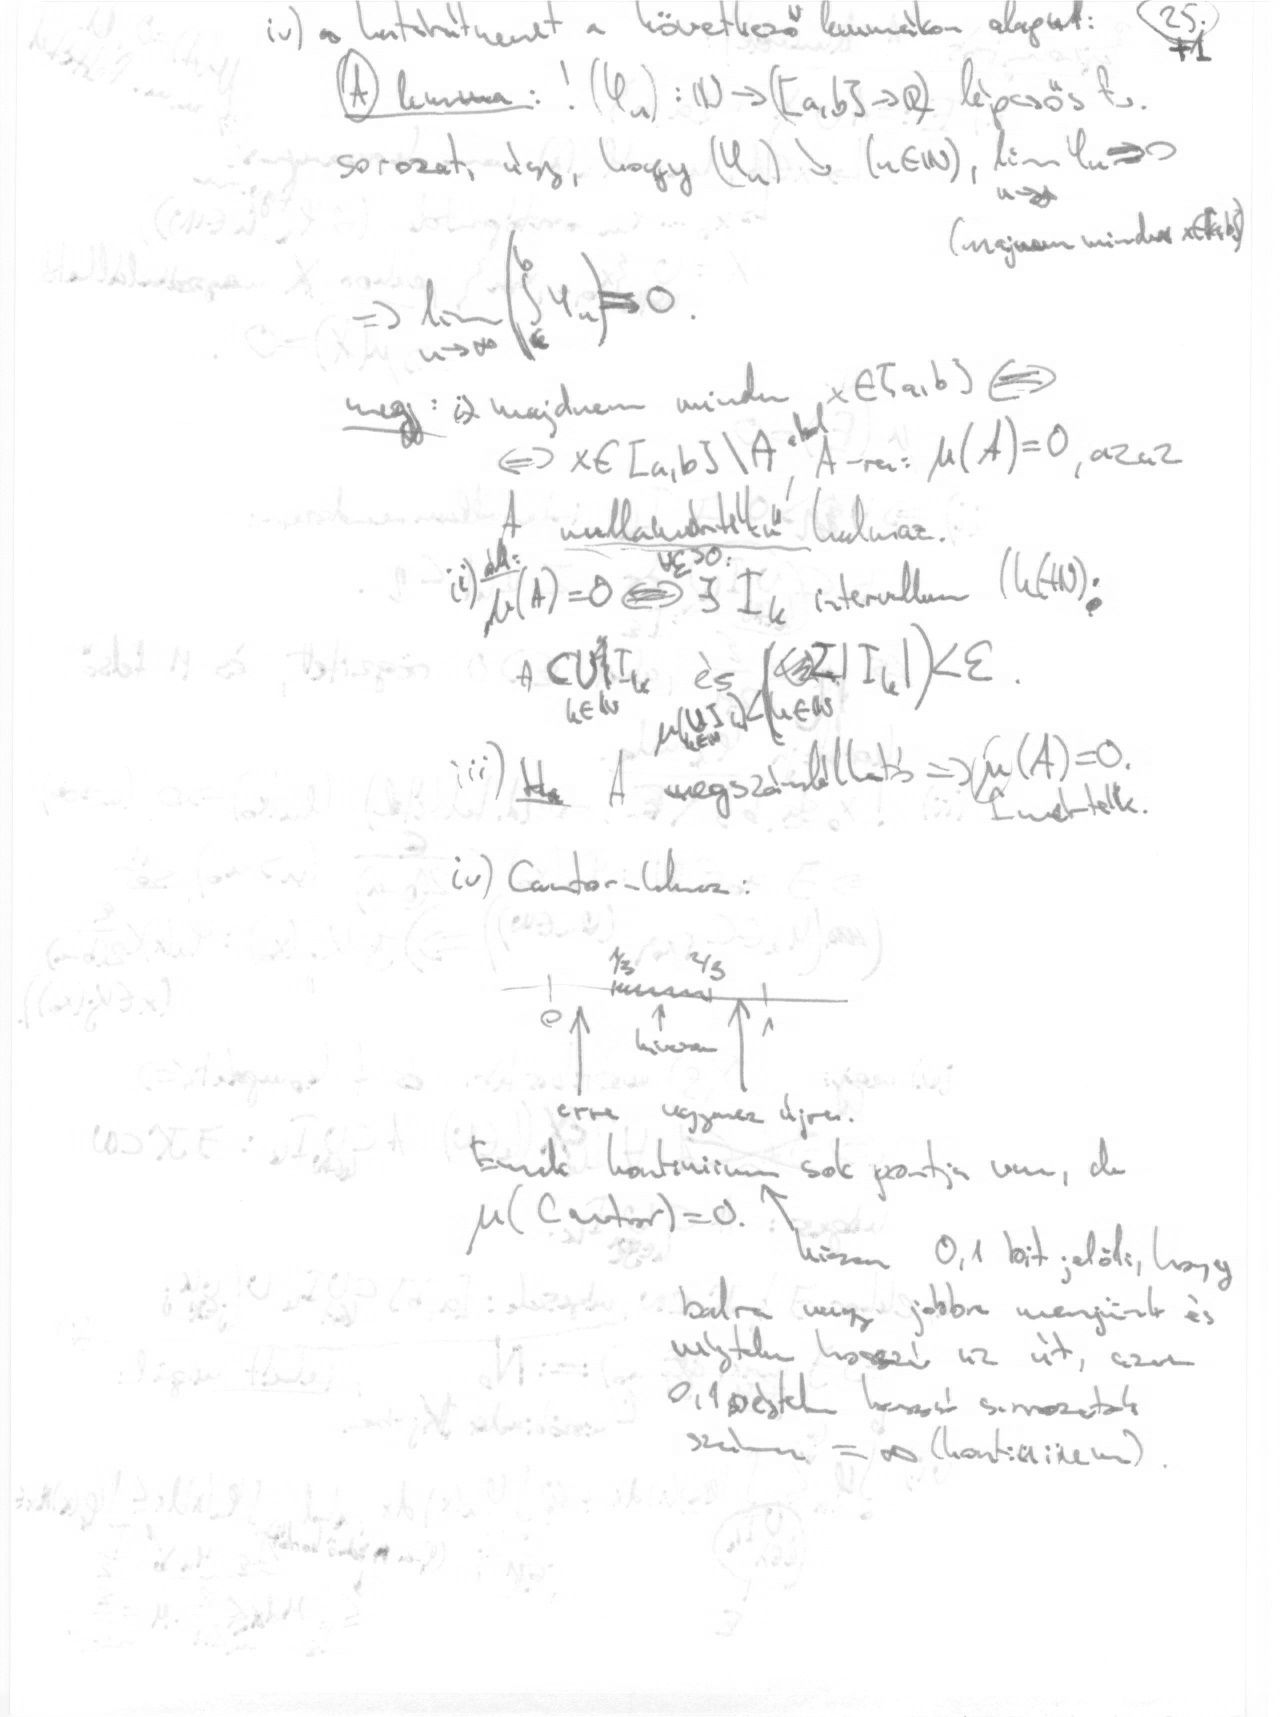 iv) a határátmenet a következő lemmákon alapul: 25. +1
(A) lemma: ! (φₙ) : ℕ → ([a,b] → ℝ) lépcsős fv.
sorozat, úgy, hogy (φₙ) ↘ (n∈ℕ), lim φₙ = 0
n→∞
(majdnem minden x∈[a,b])
=> lim (∫ φₙ) = 0.
n→∞
megj: i) majdnem minden x∈[a,b] <=>
<=> x∈[a,b] \ A, ahol A-ra: μ(A)=0, azaz
A nullamértékű halmaz.
ii) áll: μ(A)=0 <=> ∀ε>0: ∃ Iₖ intervallum (k∈ℕ):
A ⊂ ∪ Iₖ és (Σ |Iₖ|) < ε.
k∈ℕ μ(∪ Iₖ) < k∈ℕ
iii) Ha A megszámlálható => μ(A)=0.
iv) Cantor-halmaz:
1/3 2/3
0 1
kiveszem
erre ugyanez újra.
Ennek kontinuum sok pontja van, de
μ(Cantor)=0.
hiszen 0,1 bit jelöli, hogy
balra vagy jobbra menjünk és
végtelen hosszú az út, azon
0,1 végtelen hosszú sorozatok
száma = ∞ (kontinuum).